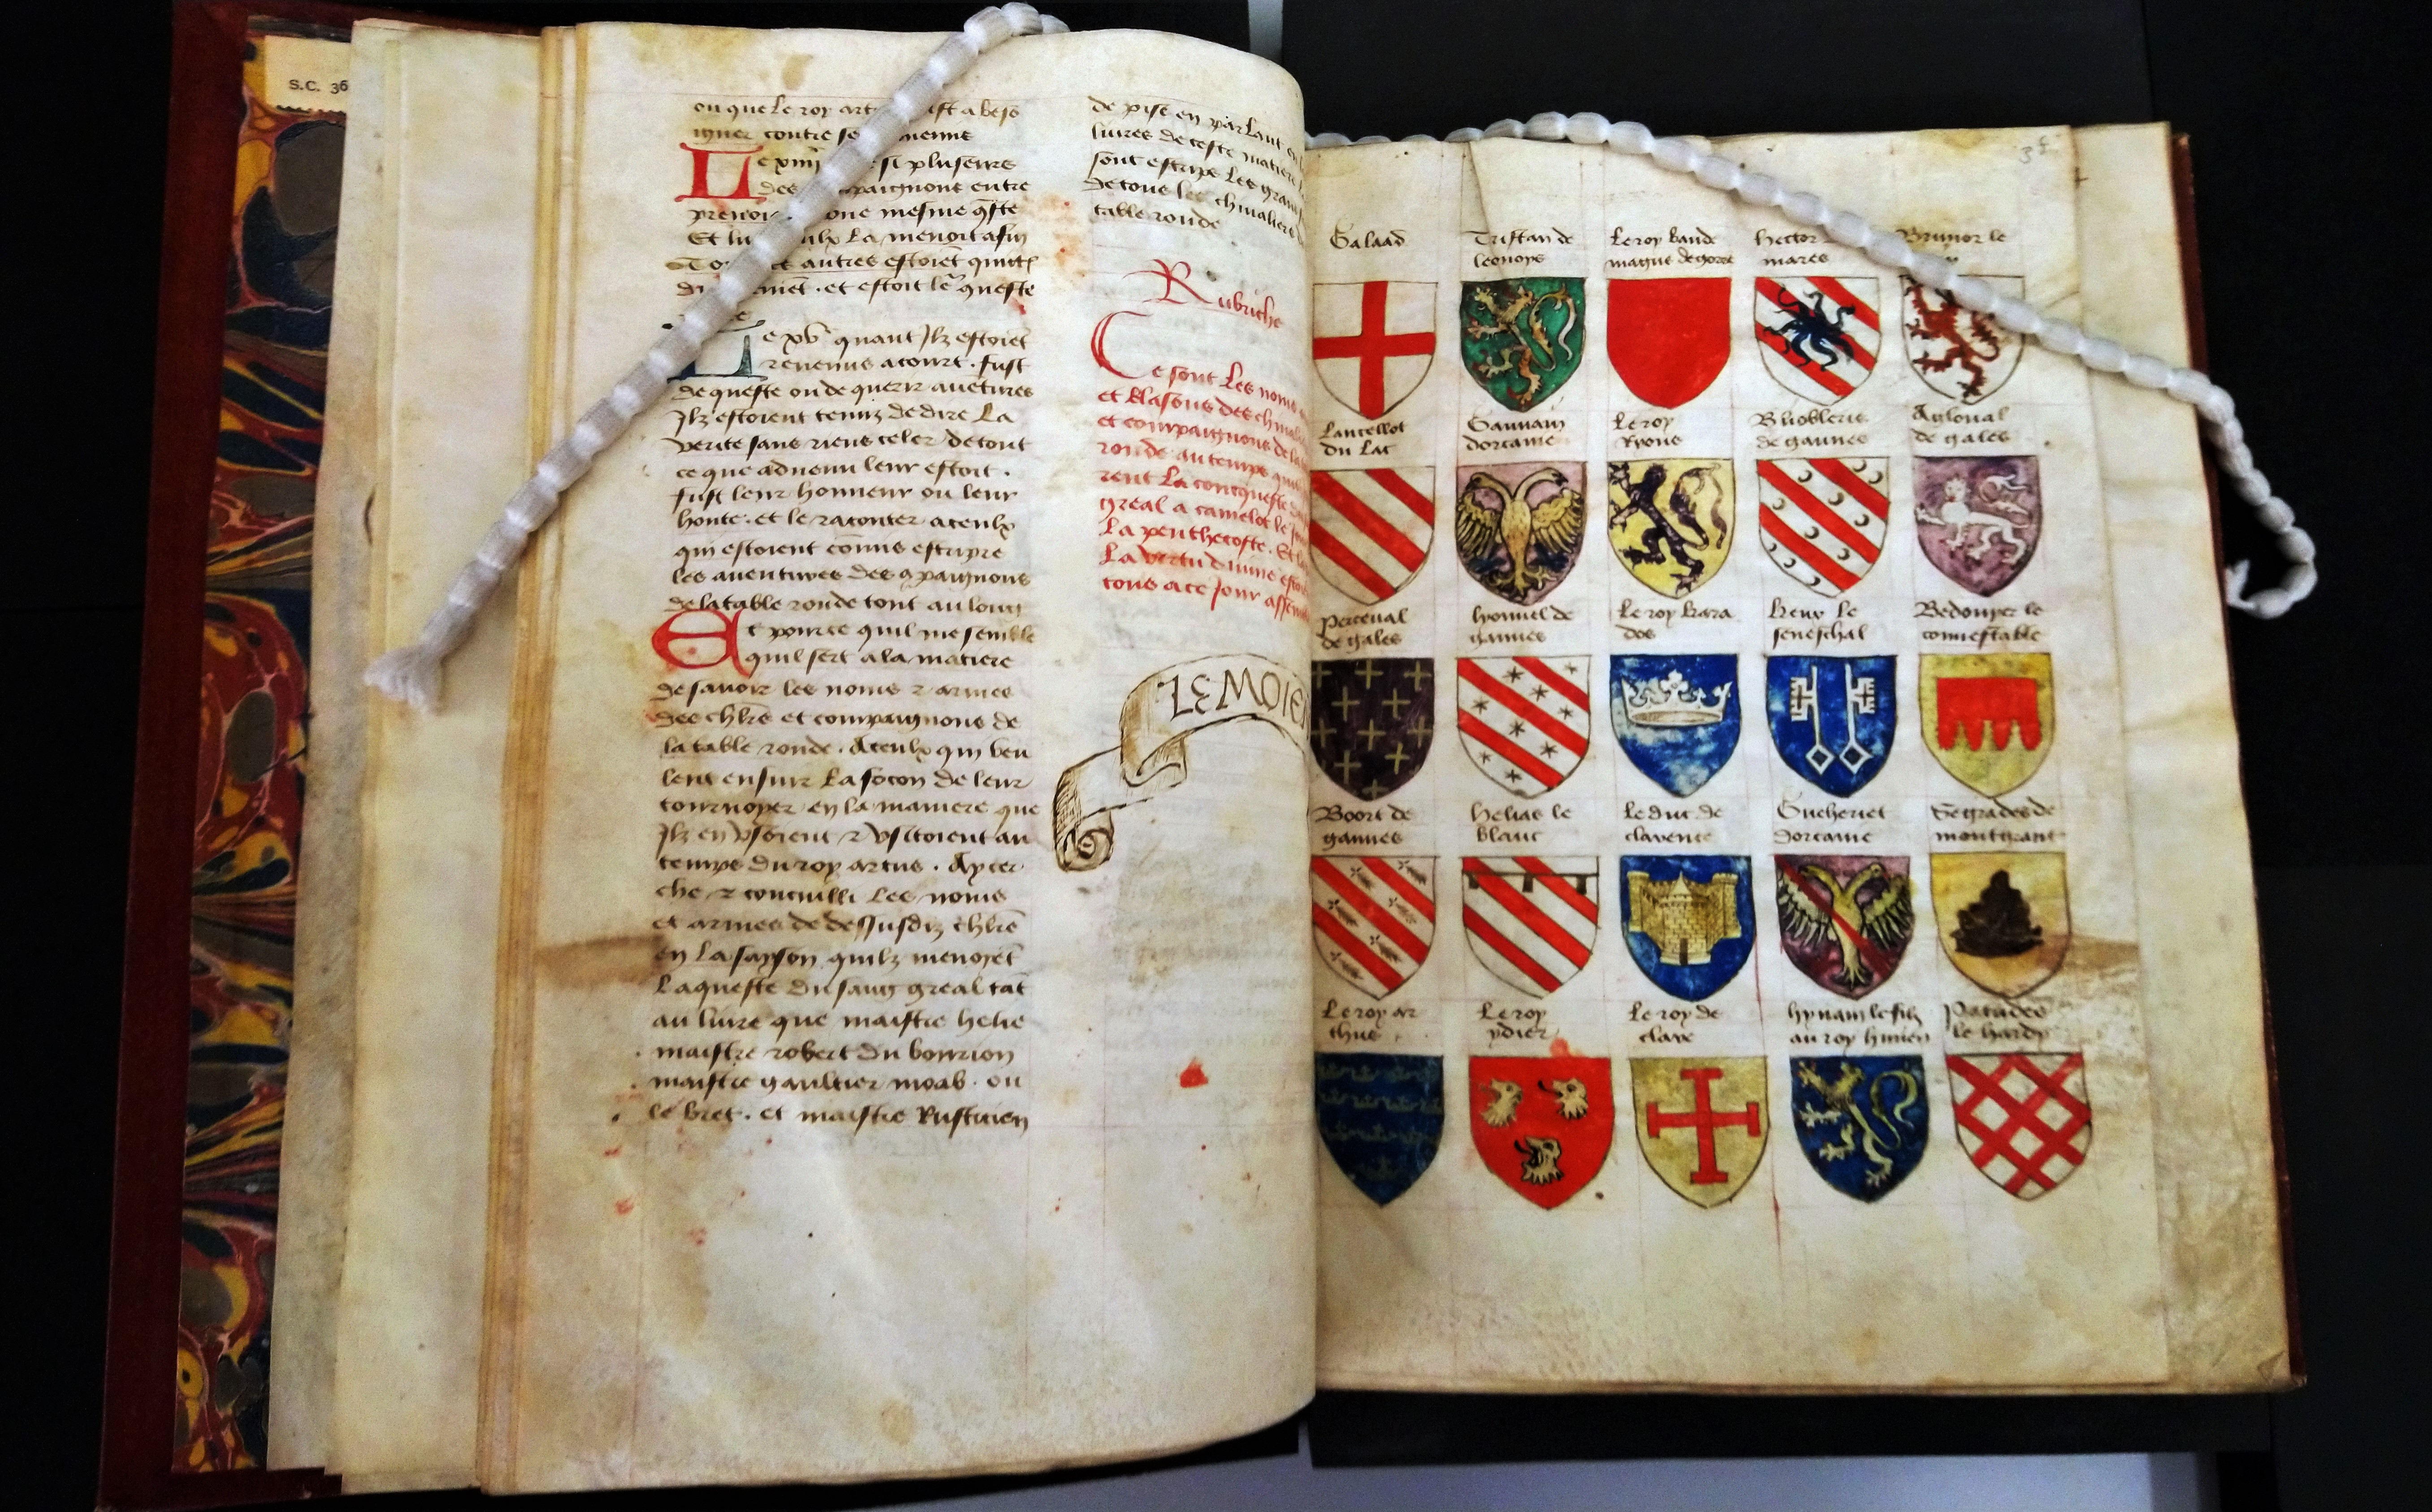 S.C. 36
ou que le roy art ist a beso
igner contre se mienne
Le xiiii si plusieurs
des paignons entre
prenoi une mesme qste
Et lu ulx la menoit a fin
To autres estoiēt quitt
du et estoit le queste
Le xv quant Ilz estoiēt
revenus a court . fust
de queste ou de querir avētures
Ilz estoient tenuz de dire La
verite sans riens celer de tout
ce que advenu leur estoit .
fust leur honneur ou leur
honte . et le raconter a ceulx
qui estoient cōmis escripre
les aventures des 9paignons
de la table ronde tout au long
Et pource quil me semble
quil sert a la matiere
de savoir les noms 2 armes
des chlrs et compaignons de
la table ronde . A ceulx qui veu
lent ensuir La focon de leur
tournoyer en la maniere que
Ilz en usoient 2 au
temps du roy artus . Ay cer
che 2 concuilli Les noms
et armes de dessusdiz chlrs
en La sayson quilz menoyēt
La queste du sang greal tāt
au livre que maistre helie
maistre robert du bourion
maistre gaultier moab . ou
le bret . et maistre Rusticien
de pise en parlant en
livres de ceste matiere
sont escrips Les gran
de tous les chivaliers
table ronde
Rubriche
Ce sont Les noms
et blasons des chival
et compaignons de la
ronde au temps quil
rent La concqueste
greal a camelot le
La penthecoste . Et
La vertu divine
tous a ce jour assem
LEMOIE
Galaad
Tristan de
leonoys
Le roy bande
magus de gorre
Hector
mares
Brunor le
Lancellot
du Lac
Gauvain
dorcanie
Le roy
Ryons
Bliobleris
de gannes
Agloval
de gales
Perceval
de gales
Lyonnel de
gannes
Le roy kara
dos
Keux le
seneschal
Bedouyer le
connestable
Boort de
gannes
Helias le
blanc
Le duc de
clarence
Gueheriet
dorcanie
Segrades de
montgrant
Le roy ar
thus
Le roy
ydier
Le roy de
clare
hyvain le filz
au roy Hurien
Patrides
le hardy